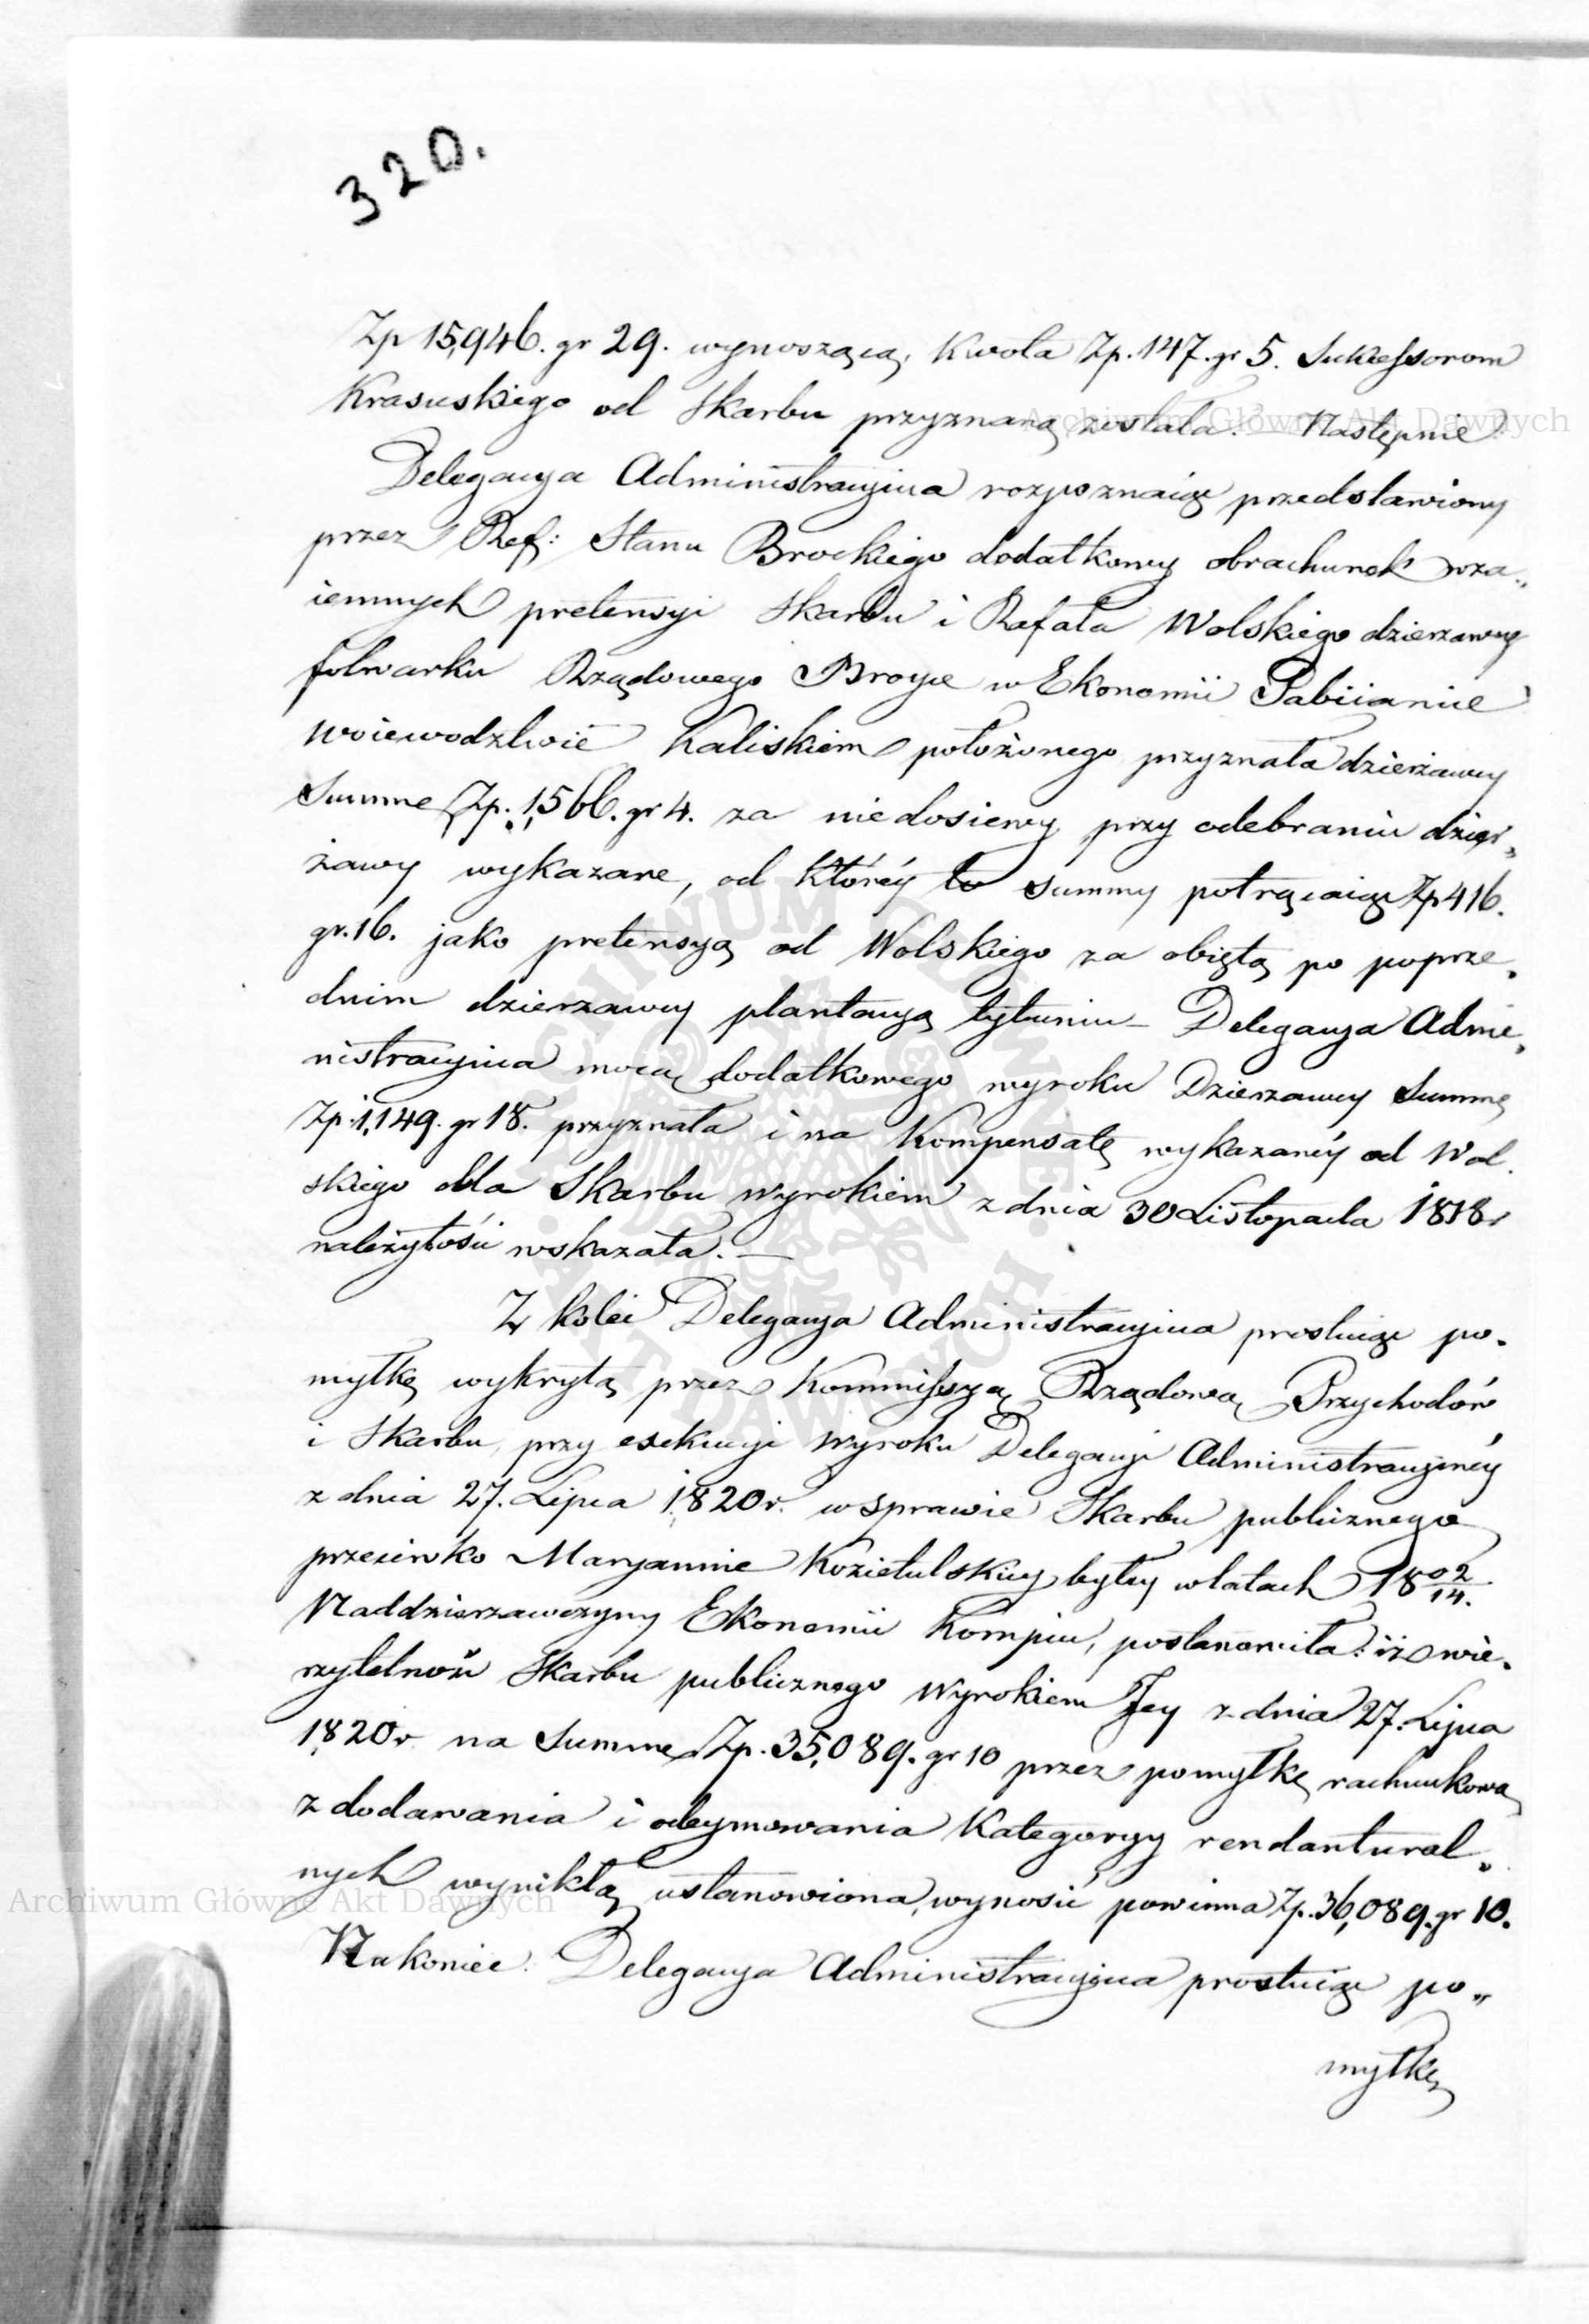 320.
Zp 15,946. gr 29. wynoszącą, Kwota Zp. 147. gr 5. Sukcessorom
Krasuskiego od Skarbu przyznaną została. — Następnie
Delegacya Administracyina rozpoznaiąc przedstawiony
przez Ref: Stanu Brockiego dodatkowy obrachunek wza„
iemnych pretensyi Skarbu i Rafała Wolskiego dzierzawcy
folwarku Rządowego Broyce w Ekonomii Pabiianice
Woiewodztwie Kaliskiem położonego przyznała dzierżawcy
Summe Zp. 1,566. gr 4. za niedosiewy przy odebraniu dzier„
żawy wykazane, od któréy to summy potrącaiąc Zp 416.
gr. 16. jako pretensyą od Wolskiego za obiętą po poprze„
dnim dzierzawcy plantacyą tytuniu — Delegacya Admi„
nistracyina mocą dodatkowego wyroku Dzierzawcy Summę
Zp. 1,149. gr 18. przyznała i na Kompensatę wykazanéy od Wol„
skiego dla Skarbu wyrokiem z dnia 30 Listopada 1818 r
należytości wskazała. —
Z kolei Delegacya Administracyina prostuiąc po„
myłkę wykrytą przez Kommissyą Rządową Przychodów
i Skarbu, przy exekucyi Wyroku Delegacyi Administracyinéy
z dnia 27. Lipca 1820 r. w sprawie Skarbu publicznego
przeciwko Maryannie Kozietulskiey byłey w latach 18 02/14.
Naddzierzawczyny Ekonomii Kompin, postanowiła: iż wie„
rzytelność Skarbu publicznego Wyrokiem Jey z dnia 27. Lipca
1820 r na Summe Zp. 35,089. gr 10 przez pomyłkę rachunkową
z dodawania i odeymowania Kategoryy rendantural„
nych wynikłą ustanowiona, wynosić powinna Zp. 36,089. gr 10.
Nakoniec. Delegacya Administracyina prostuiąc po„
myłkę
Archiwum Główne Akt Dawnych
Archiwum Główne Akt Dawnych